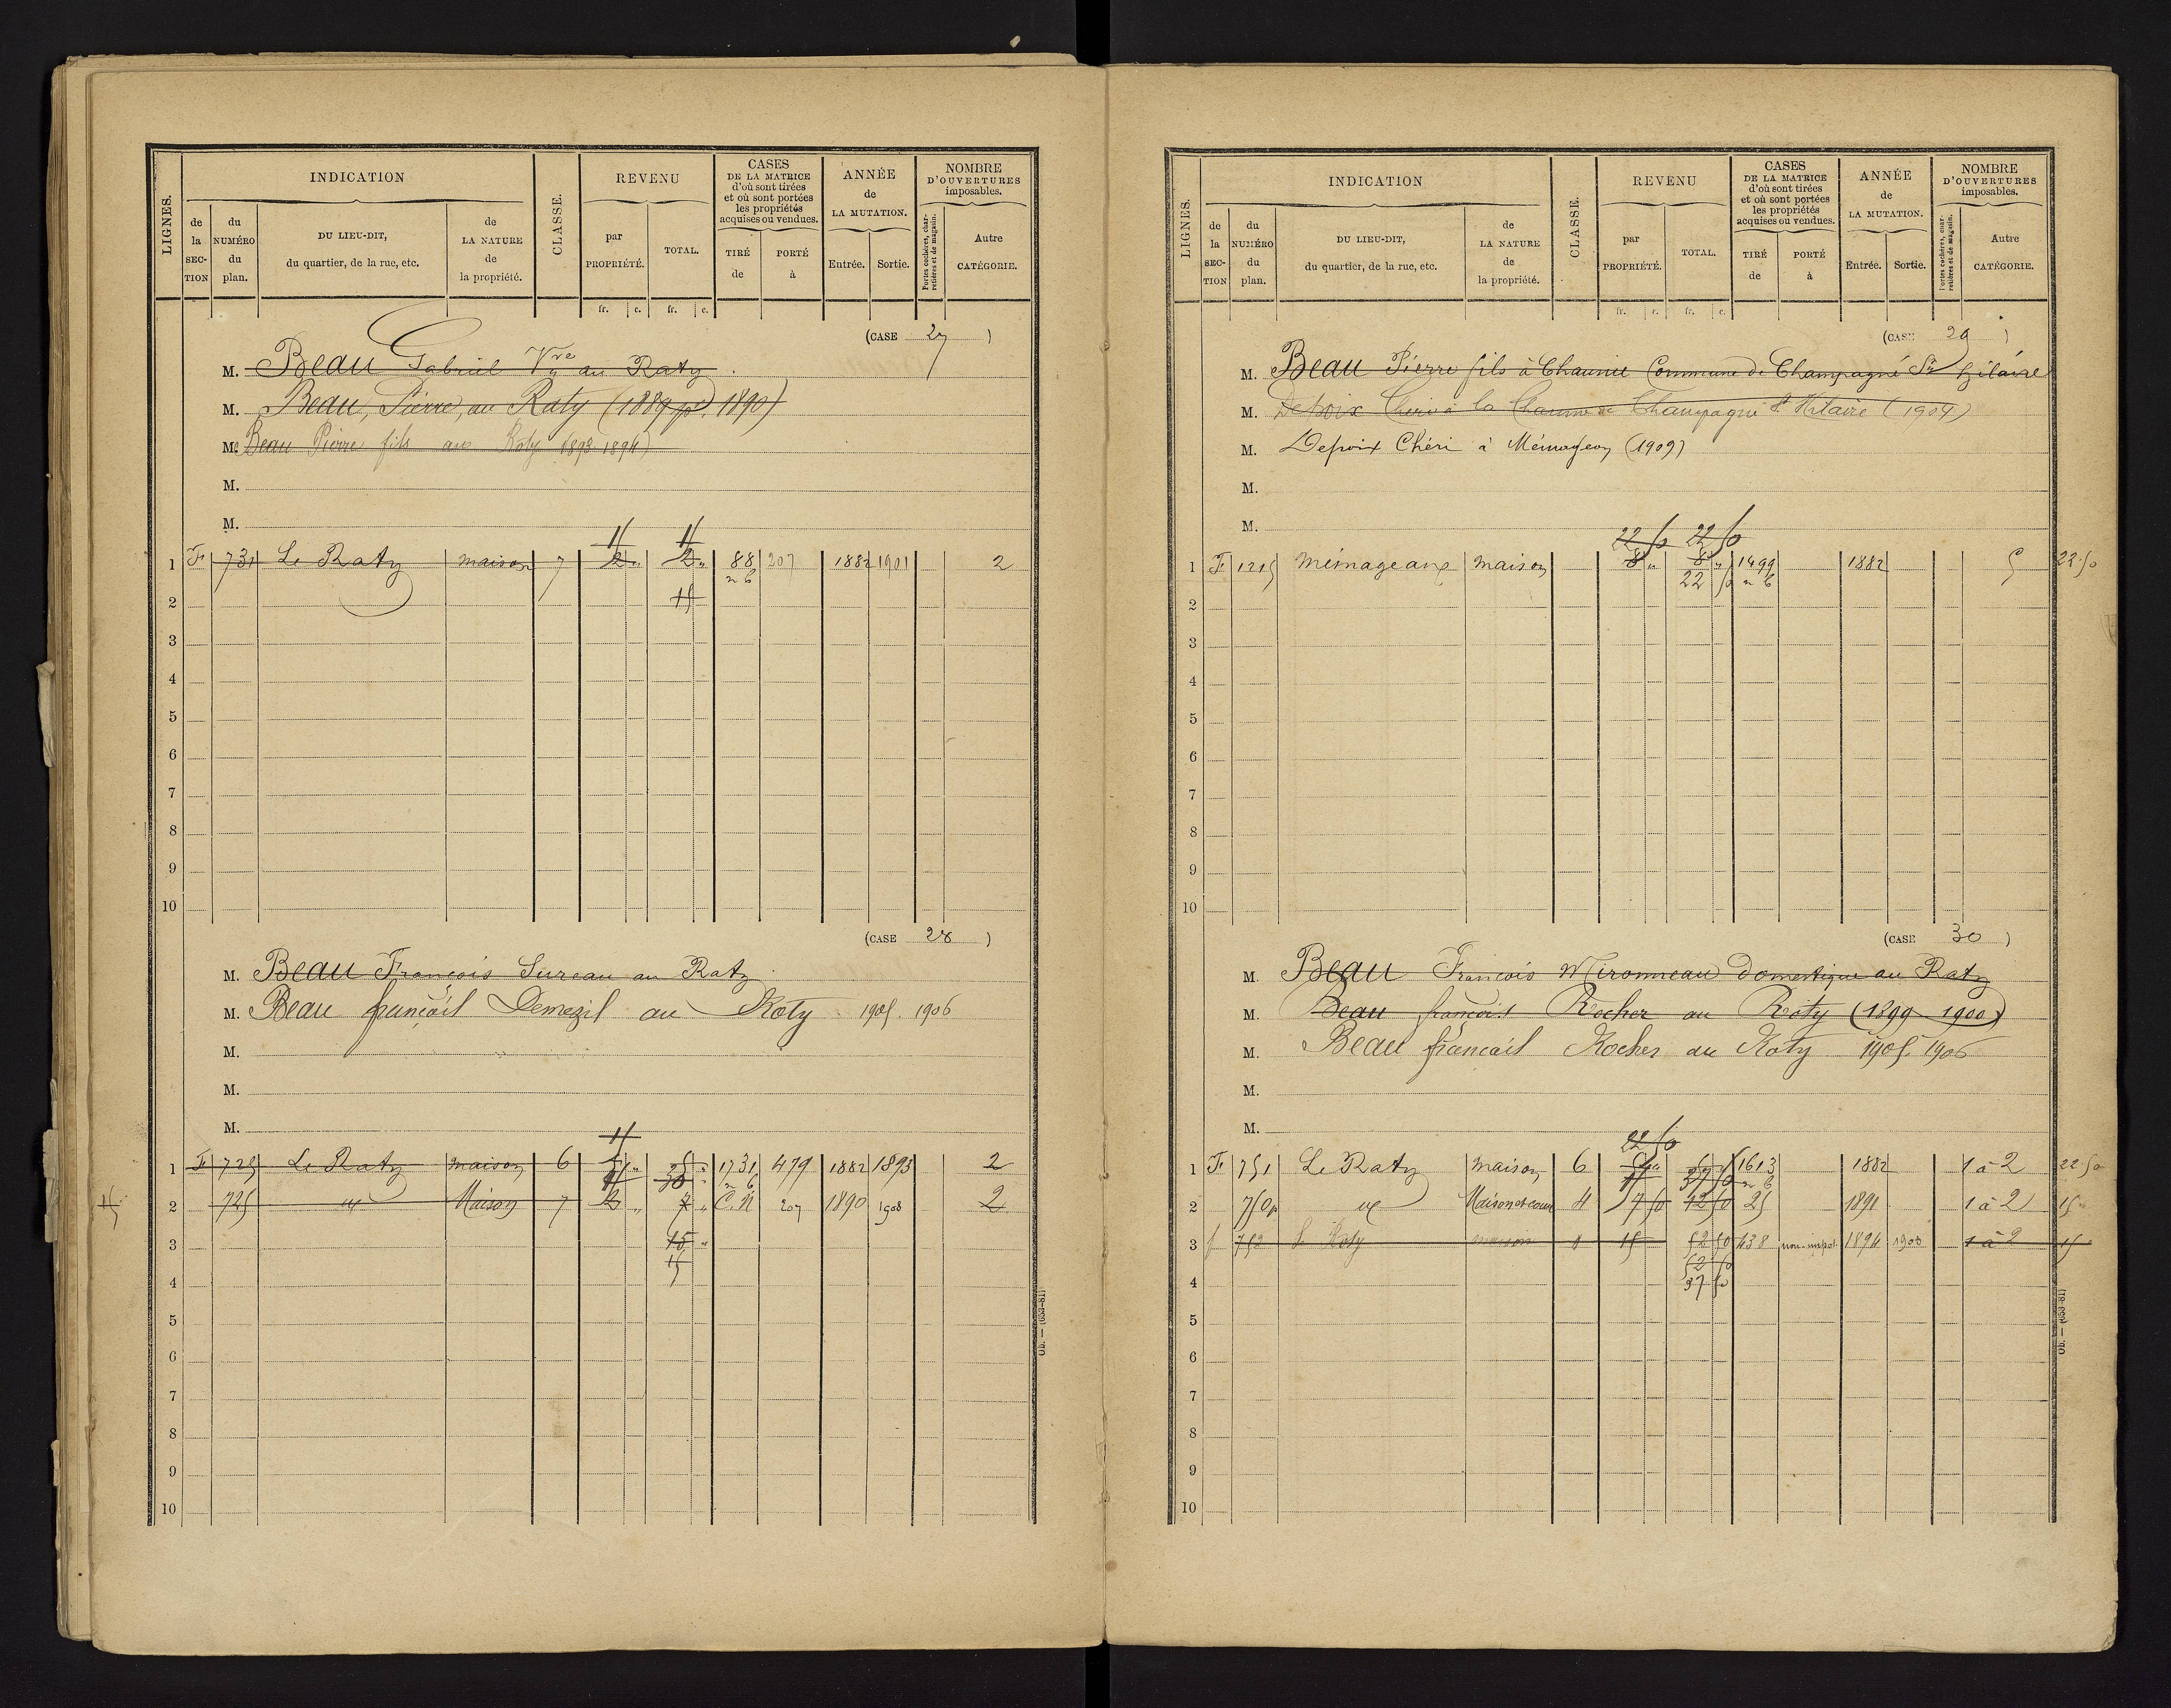 LIGNES.
INDICATION
CLASSE.
REVENU
CASES
DE LA MATRICE
d'où sont tirées
et où sont portées
les propriétés
acquises ou vendues.
ANNÉE
de
LA MUTATION.
NOMBRE
D'OUVERTURES
imposables.
de la SECTION
du NUMÉRO du plan.
DU LIEU-DIT,
du quartier, de la rue, etc.
de LA NATURE de la propriété.
par PROPRIÉTÉ.
TOTAL.
TIRÉ de
PORTÉ à
Entrée.
Sortie.
Portes cochères, charretières et de magasin.
Autre CATÉGORIE.
fr. c. fr. c.
(CASE 27)
M. Beau Gabriel Vve au Raty
M. Beau, Pierre, au Raty (1889 pr 1890)
M. Beau Pierre fils au Raty 1893 1894)
M.
M.
15 15
1 F 731 Le Raty maison 7 2 " 2 " 88 207 1882 1901 2
n b
2 15
3
4
5
6
7
8
9
10
(CASE 28)
M. Beau François Sureau au Raty
M. Beau françois Demezil au Raty 1905. 1906
M.
M.
M.
15
1 F 725 Le Raty maison 6 5 " 5 " 1731 479 1882 1893 2
n b
15 30
15 2 725 id Maison 7 2 " 7 " C.N 207 1890 1908 2
3 15 "
15
4
5
6
7
8
9
10
Ob. — (653-81)
LIGNES.
INDICATION
CLASSE.
REVENU
CASES
DE LA MATRICE
d'où sont tirées
et où sont portées
les propriétés
acquises ou vendues.
ANNÉE
de
LA MUTATION.
NOMBRE
D'OUVERTURES
imposables.
de la SECTION
du NUMÉRO du plan.
DU LIEU-DIT,
du quartier, de la rue, etc.
de LA NATURE de la propriété.
par PROPRIÉTÉ.
TOTAL.
TIRÉ de
PORTÉ à
Entrée.
Sortie.
Portes cochères, charretières et de magasin.
Autre CATÉGORIE.
fr. c. fr. c.
(CASE 29)
M. Beau Pierre fils à Chaunie Commune de Champagné St hilaire
M. Depoix Chéri à la Chaume de Champagné St Hilaire (1904)
M. Depoix Chéri à Mémageon (1909)
M.
M.
22 50 22 50
1 F 1215 mémageaux maison 8 " 8 " 1499 1882 5 22.50
22 50 n b
2
3
4
5
6
7
8
9
10
(CASE 30)
M. Beau François Mironneau Domestique au Raty
M. Beau françois Rocher au Raty (1899 1900)
M. Beau françois Rocher au Raty 1905. 1906
M.
M.
22 50
1 F 751 Le Raty maison 6 5 " 5 " 1613 1882 1 à 2 22 50
37 50 n b
2 750p id Maison et cour 4 7 50 12 50 25 1891 1 à 2 15 "
3 f 752 Le Raty maison 15 52 50 438 non-impos. 1894 1903 1 à 2 15
52 50
4 37 50
5
6
7
8
9
10
Ob. — (653-81)